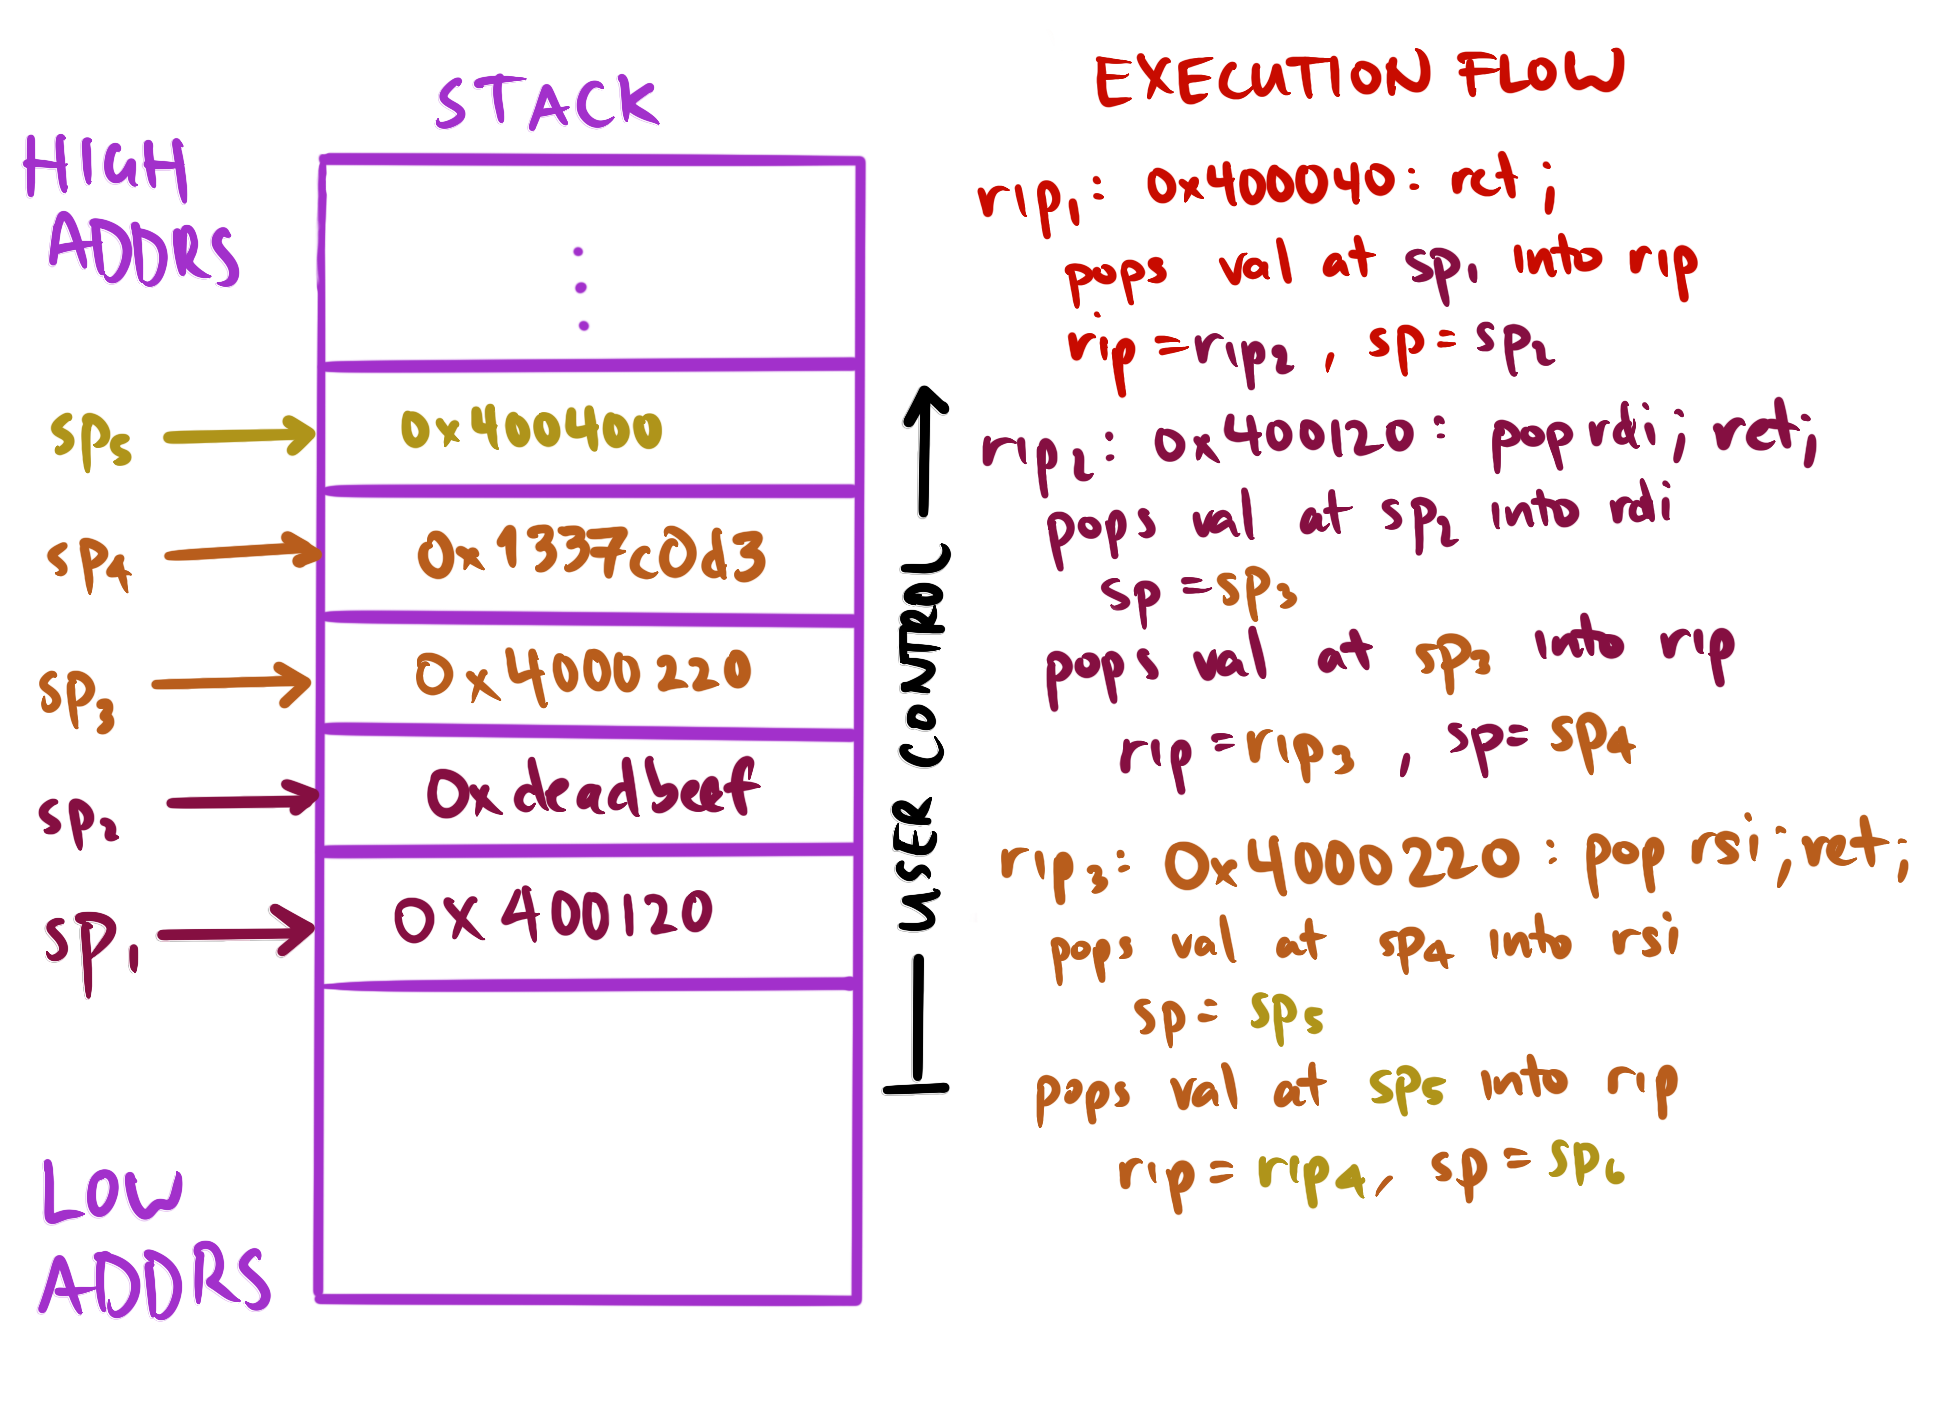 STACK
HIGH
ADDRS
sp5
0x400400
sp4
0x1337c0d3
sp3
0x4000220
sp2
0xdeadbeef
sp1
0x400120
LOW
ADDRS
USER CONTROL
EXECUTION FLOW
rip1: 0x400040: ret;
pops val at sp1 into rip
rip = rip2, sp = sp2
rip2: 0x400120: pop rdi; ret;
pops val at sp2 into rdi
sp = sp3
pops val at sp3 into rip
rip = rip3, sp = sp4
rip3: 0x4000220: pop rsi; ret;
pops val at sp4 into rsi
sp = sp5
pops val at sp5 into rip
rip = rip4, sp = sp6